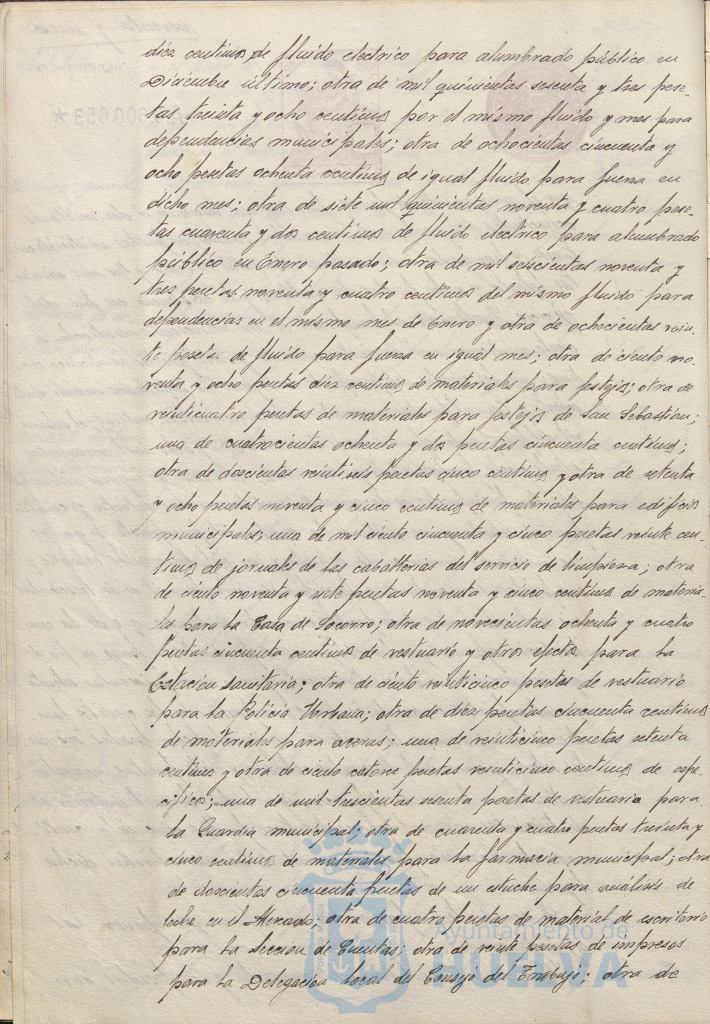 diez centimos de fluido electrico para alumbrado público en
Diciembre último; otra de mil quinientas sesenta y tres pese-
tas treinta y ocho centimos por el mismo fluido y mes para
dependencias municipales; otra de ochocientas cincuenta y
ocho pesetas ochenta centimos de igual fluido para fuerza en
dicho mes; otra de siete mil quinientas noventa y cuatro pese-
tas cuarenta y dos centimos de fluido electrico para alumbrado
público en Enero pasado; otra de mil seiscientas noventa y
tres pesetas noventa y cuatro centimos del mismo fluido para
dependencias en el mismo mes de Enero y otra de ochocientas vein-
te pesetas de fluido para fuerza en igual mes; otra de ciento no-
venta y ocho pesetas diez centimos de materiales para festejos; otra de
veinticuatro pesetas de materiales para festejos de San Sebastian;
una de cuatrocientas ochenta y dos pesetas cincuenta centimos;
otra de doscientas veintiseis pesetas cinco centimos y otra de setenta
y ocho pesetas noventa y cinco centimos de materiales para edificios
municipales; una de mil ciento cincuenta y cinco pesetas veinte cen-
timos de jornales de las caballerias del servicio de limpieza; otra
de ciento noventa y siete pesetas noventa y cinco centimos de materia-
les para la Casa de Socorro; otra de novecientas ochenta y cuatro
pesetas cincuenta centimos de vestuario y otros efectos para la
Estacion Sanitaria; otra de ciento veinticinco pesetas de vestuario
para la Policia Urbana; otra de diez pesetas cincuenta centimos
de materiales para aceras; una de veinticinco pesetas setenta
centimos y otra de ciento catorce pesetas veinticinco centimos de espe-
cificos; una de mil trescientas sesenta pesetas de vestuario para
la Guardia municipal; otra de cuarenta y cuatro pesetas treinta y
cinco centimos de materiales para la farmacia municipal; otra
de doscientas cincuenta pesetas de un estuche para análisis de
leche en el Mercado; otra de cuatro pesetas de material de escritorio
para la Seccion de Cuentas; otra de veinte pesetas de impresos
para la Delegacion local del Consejo del Trabajo; otra de
Ayuntamiento de
HUELVA